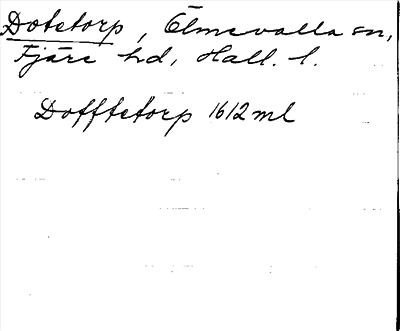 Dotetorp, Ölmevalla sn,
Fjäre hd, Hall. l.
Dofftetorp 1612 ml